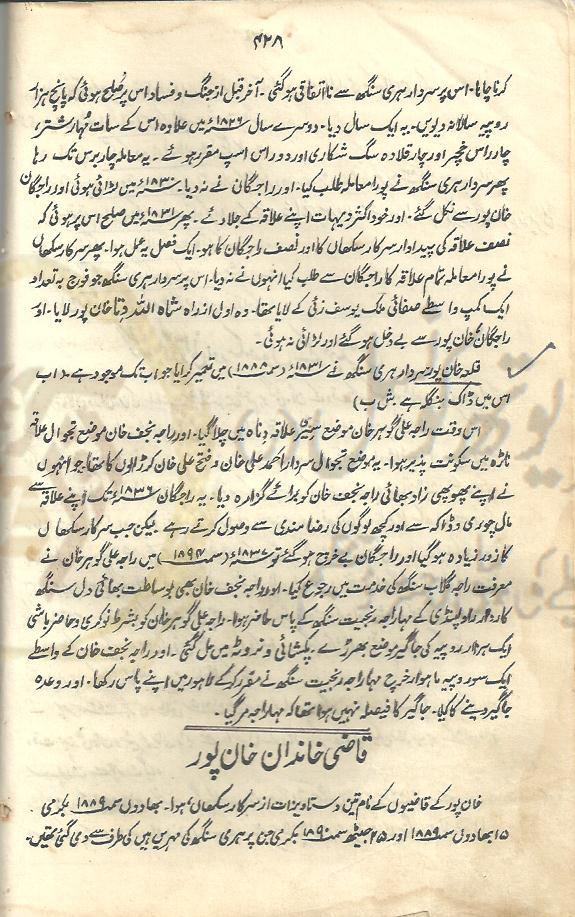 ۴۲۸
کرنا چاہا۔ اس پر سردار ہری سنگھ سے نااتفاقی ہو گئی۔ آخر قبل از جنگ و فساد اس پر صُلح ہوئی کہ پانچ ہزار
روپیہ سالانہ دیویں۔ یہ ایک سال دیا۔ دوسرے سال ۱۸۲۶ء میں علاوہ اس کے سات مُہار شتر،
چار راس خچر اور چار قلادہ سگ شکاری اور دو راس اسپ مقرر ہوئے۔ یہ معاملہ چار برس تک رہا
پھر سردار ہری سنگھ نے پورا معاملہ طلب کیا۔ اور راجگان نے نہ دیا۔ ۱۸۳۰ء میں لڑائی ہوئی اور راجگان
خان پور سے نکل گئے۔ اور خود اکثر دیہات اپنے علاقہ کے جلا دئے۔ پھر ۱۸۳۱ء میں صلح اس پر ہوئی کہ
نصف علاقہ کی پیداوار سرکار سکھاں کا اور نصف راجگان کا ہو۔ ایک فصل یہ عمل ہوا۔ پھر سرکار سکھاں
نے پورا معاملہ تمام علاقہ کا راجگان سے طلب کیا انہوں نے نہ دیا۔ اس پر سردار ہری سنگھ جو فوج بہ تعداد
ایک کمپ واسطے صفائی ملک یوسف زئی کے لایا تھا۔ وہ اول از راہ شاہ اللہ دتا خان پور لایا۔ اور
راجگان خان پور سے بے دخل ہو گئے اور لڑائی نہ ہوئی۔
قلعہ خان پور سردار ہری سنگھ نے ۱۸۳۱ء (سمت ۱۸۸۸) میں تعمیر کرایا جو اب تک موجود ہے۔ (اب
اس میں ڈاک بنگلہ ہے ش ب)
اس وقت راجہ علی گوہر خان موضع علاقہ دناہ میں چلا گیا۔ اور راجہ نجف خان موضع تجوال علاقہ
ناڑہ میں سکونت پذیر ہوا۔ یہ موضع تجوال سردار احمد علی خان و فتح علی خان کرڑالوں کا تھا جو انہوں
نے اپنے پھوپھی زاد بھائی راجہ نجف خان کو برائے گذارہ دیا۔ یہ راجگان ۱۸۳۶ء تک اپنے علاقہ سے
مال چوری و ڈاکہ سے اور کچھ لوگوں کی رضا مندی سے وصول کرتے رہے۔ لیکن جب سرکار سکھاں
کا زور زیادہ ہو گیا اور راجگان بے خرچ ہو گئے تو ۱۸۳۷ء (سمت ۱۸۹۴) میں راجہ علی گوہر خان نے
معرفت راجہ گلاب سنگھ کی خدمت میں رجوع کیا۔ اور راجہ نجف خان بھی بوساطت بھائی دل سنگھ
کاردار راولپنڈی کے مہاراجہ رنجیت سنگھ کے پاس حاضر ہوا۔ راجہ علی گوہر خان کو بشرط نوکری و حاضر باشی
ایک ہزار روپیہ کی جاگیر موضع بھرڑے۔ پکشائی و نروٹہ میں مل گئی۔ اور راجہ نجف خان کے واسطے
ایک سو روپیہ ماہوار خرچ مہاراجہ رنجیت سنگھ نے مقرر کر کے لاہور میں اپنے پاس رکھا۔ اور وعدہ
جاگیر دینے کا کیا۔ جاگیر کا فیصلہ نہیں ہوا تھا کہ مہاراجہ مر گیا۔
قاضی خاندان خان پور
خان پور کے قاضیوں کے نام تین دستاویزات از سرکار سکھاں ہوا۔ بھادوں سمت ۱۸۸۹ بکرمی
۱۵ بھادوں سمت ۱۸۸۹ اور ۲۵ جیٹھ سمت ۱۸۹۰ بکرمی جن پر ہری سنگھ کی مہریں ہیں کی طرف سے دی گئی تھیں۔